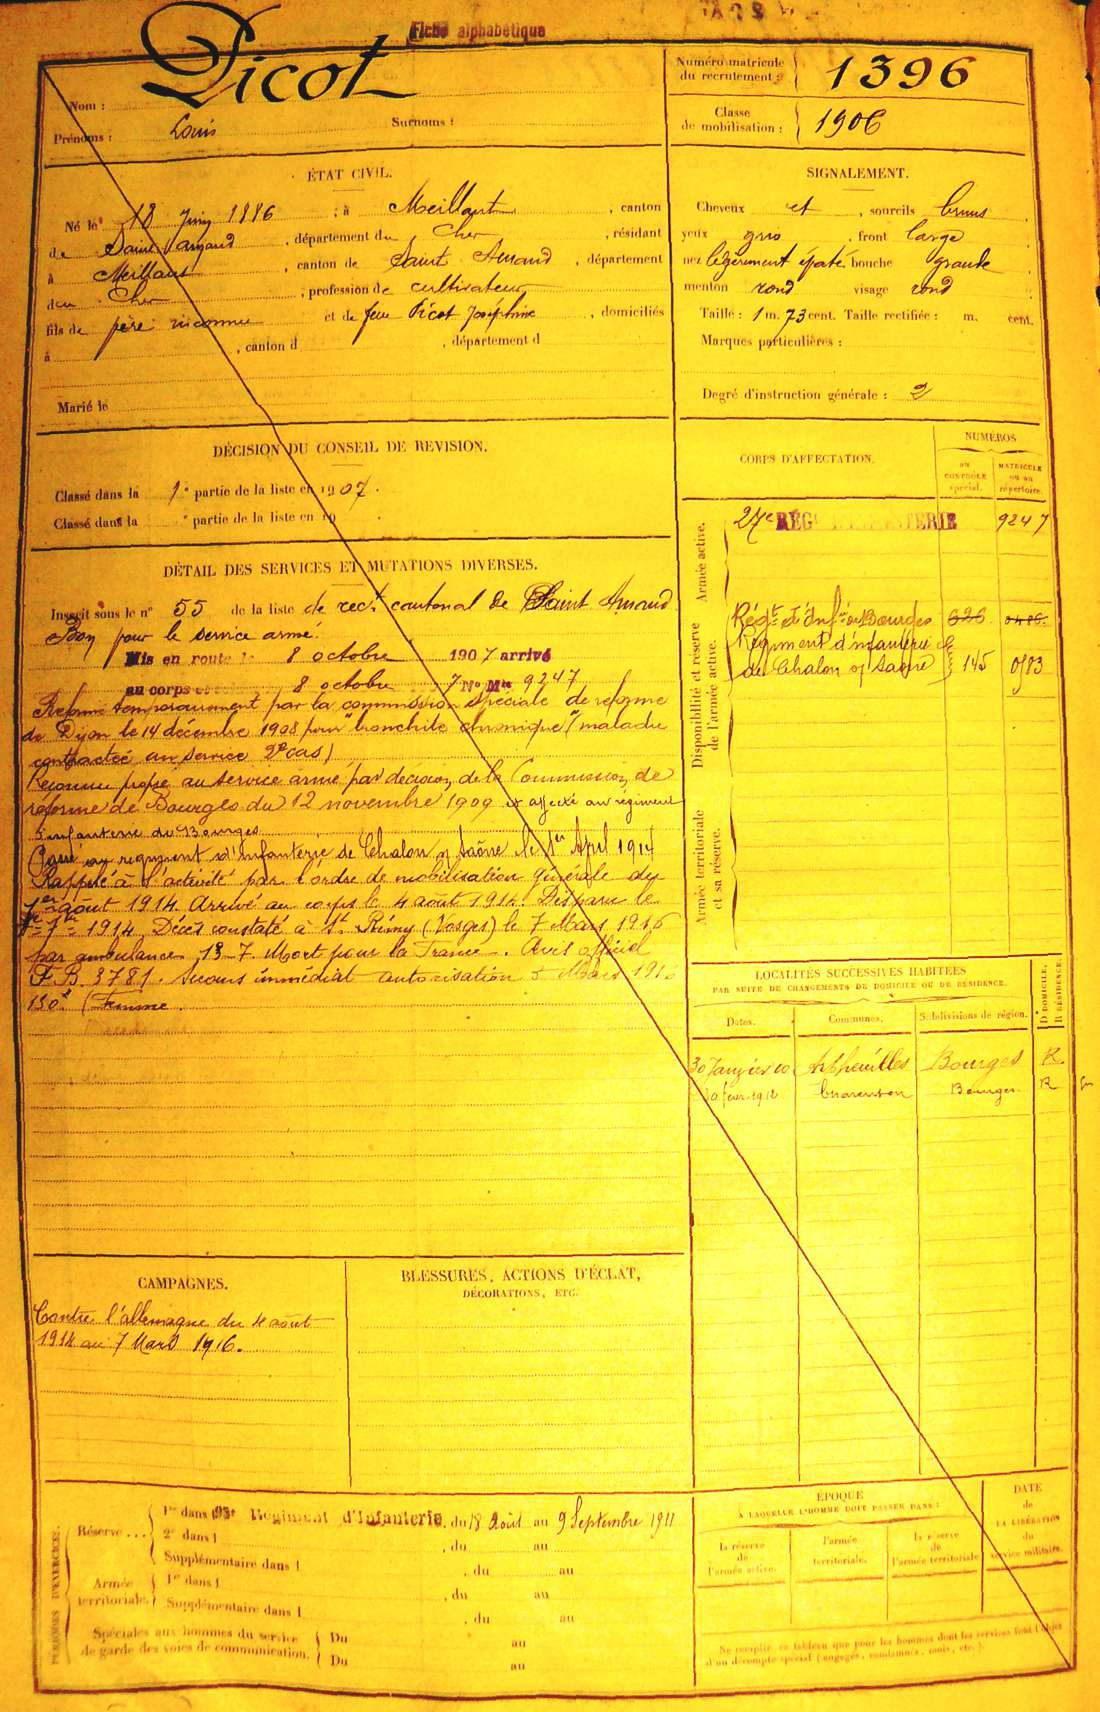 Fiche alphabétique
Nom : Picot
Prénoms : Louis Surnoms :
Numéro matricule du recrutement : 1396
Classe de mobilisation : 1906
ÉTAT CIVIL.
Né le 18 Juin 1886 , à Meillant , canton
de Saint Amand , département du Cher , résidant
à Meillant , canton de Saint Amand , département
du Cher , profession de cultivateur
fils de père inconnu et de feue Picot Joséphine , domiciliés
à , canton d , département d
Marié le
SIGNALEMENT.
Cheveux et , sourcils bruns
yeux gris , front large
nez légèrement épaté, bouche grande
menton rond visage rond
Taille : 1 m. 73 cent. Taille rectifiée : m. cent.
Marques particulières :
Degré d'instruction générale : 2
DÉCISION DU CONSEIL DE REVISION.
Classé dans la 1e partie de la liste en 1907.
Classé dans la e partie de la liste en 19 .
CORPS D'AFFECTATION.
NUMÉROS
au CONTRÔLE spécial.
MATRICULE ou au répertoire.
Armée active.
27e RÉGt D'INFANTERIE 9247
Disponibilité et réserve de l'armée active.
Régt d'Infie de Bourges 626 0486
Régiment d'infanterie
de Chalon s/ Saône 145 0183
Armée territoriale et sa réserve.
DÉTAIL DES SERVICES ET MUTATIONS DIVERSES.
Inscrit sous le n° 55 de la liste de rect cantonal de Saint Amand
Bon pour le service armé.
Mis en route le 8 octobre 1907 arrivé
au corps 8 octobre 7 No Mle 9247
Réformé temporairement par la commission spéciale de réforme
de Dijon le 14 décembre 1908 pour "bronchite chronique" (maladie
contractée au service 2e cas)
Reconnu propre au service armé par décision de la Commission de
réforme de Bourges du 12 novembre 1909 et affecté au régiment
d'infanterie de Bourges
Passé au régiment d'infanterie de Chalon s/ Saône le 1er Avril 1914
Rappelé à l'activité par l'ordre de mobilisation générale du
1er août 1914. Arrivé au corps le 4 août 1914. Disparu le
1914. Décès constaté à St Rémy (Vosges) le 7 Mars 1916
par ambulance 13-7. Mort pour la France. Avis officiel
F.B. 3781. Secours immédiat autorisation 5 Mars 1916
150f (Femme.
LOCALITÉS SUCCESSIVES HABITÉES
PAR SUITE DE CHANGEMENTS DE DOMICILE OU DE RÉSIDENCE.
Dates. Communes. Subdivisions de région. D DOMICILE. R RÉSIDENCE.
30 Janvier 10 Arpheuilles Bourges R
fevr. 1912 Charenton Bourges R
CAMPAGNES.
Contre l'allemagne du 4 août
1914 au 7 Mars 1916.
BLESSURES, ACTIONS D'ÉCLAT,
DÉCORATIONS, ETC.
PÉRIODES D'EXERCICES.
Réserve ...
1re dans l 95e Régiment d'Infanterie, du 18 Août au 9 Septembre 1911
2e dans l , du au
Supplémentaire dans l , du au
Armée territoriale.
1re dans l , du au
Supplémentaire dans l , du au
Spéciales aux hommes du service
de garde des voies de communication.
Du au
Du au
ÉPOQUE
À LAQUELLE L'HOMME DOIT PASSER DANS :
la réserve de l'armée active.
l'armée territoriale.
la réserve de l'armée territoriale
DATE de LA LIBÉRATION du service militaire.
Ne remplir ce tableau que pour les hommes dont les services font l'objet
d'un décompte spécial (engagés, condamnés, omis, etc.).